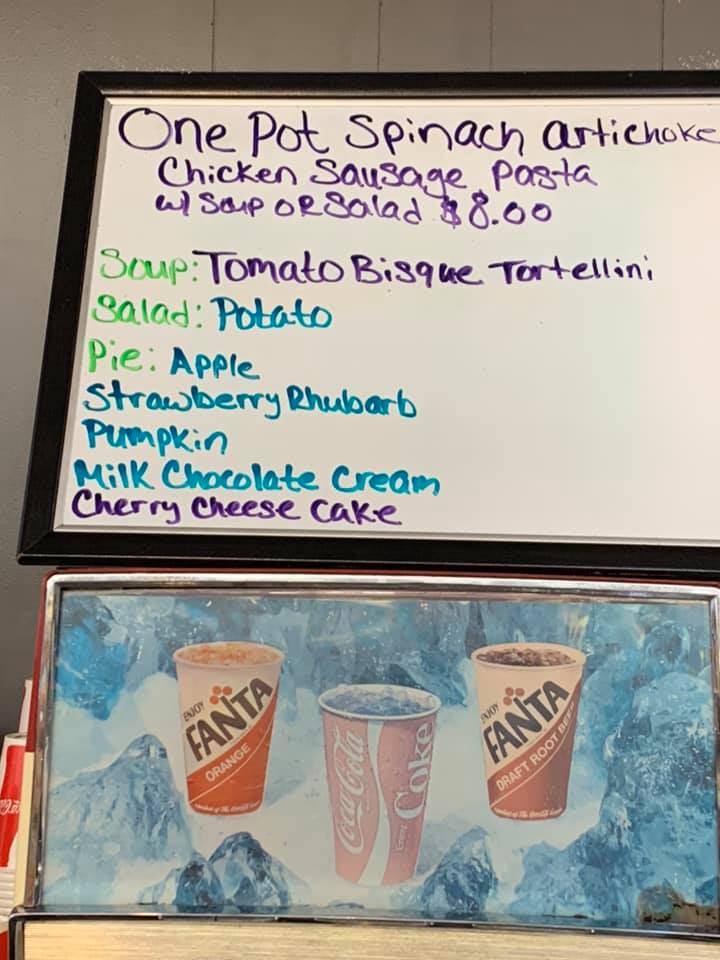 One Pot Spinach artichoke
Chicken Sausage Pasta
w/ Soup OR Salad $8.00
Soup: Tomato Bisque Tortellini
Salad: Potato
Pie: Apple
Strawberry Rhubarb
Pumpkin
Milk Chocolate Cream
Cherry Cheese Cake
ENJOY
FANTA
ORANGE
Coca-Cola
Enjoy
Coke
ENJOY
FANTA
DRAFT ROOT BEER